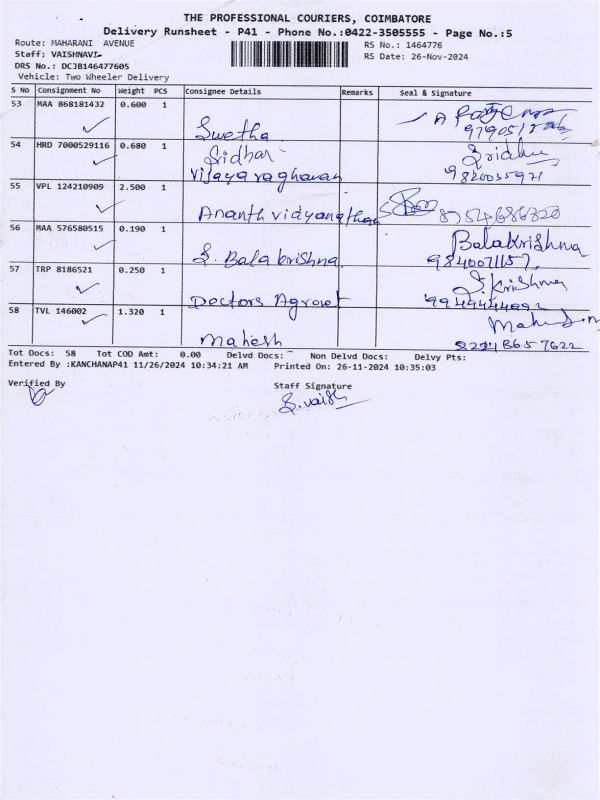 THE PROFESSIONAL COURIERS, COIMBATORE
Delivery Runsheet - P41 - Phone No.:0422-3505555 - Page No.:5
Route: MAHARANI AVENUE
RS No.: 1464776
Staff: VAISHNAVI-
RS Date: 26-Nov-2024
DRS No.: DCJB146477605
Vehicle: Two Wheeler Delivery
S No Consignment No Weight PCS Consignee Details Remarks Seal & Signature
53 MAA 868181432 0.600 1
Swetha
54 HRD 7000529116 0.680 1 Sridhar Sridhar
Vijayaraghavan 9820035971
55 VPL 124210909 2.500 1
Ananth vidyanathan 8754686820
56 MAA 576580515 0.190 1 Balakrishna
S. Balakrishna 9840071157
57 TRP 8186521 0.250 1 S. Krishna
Doctors Agrovet
58 TVL 146002 1.320 1
Mahesh
Tot Docs: 58 Tot COD Amt: 0.00 Delvd Docs: Non Delvd Docs: Delvy Pts:
Entered By :KANCHANAP41 11/26/2024 10:34:21 AM Printed On: 26-11-2024 10:35:03
Verified By Staff Signature
S. Vaish